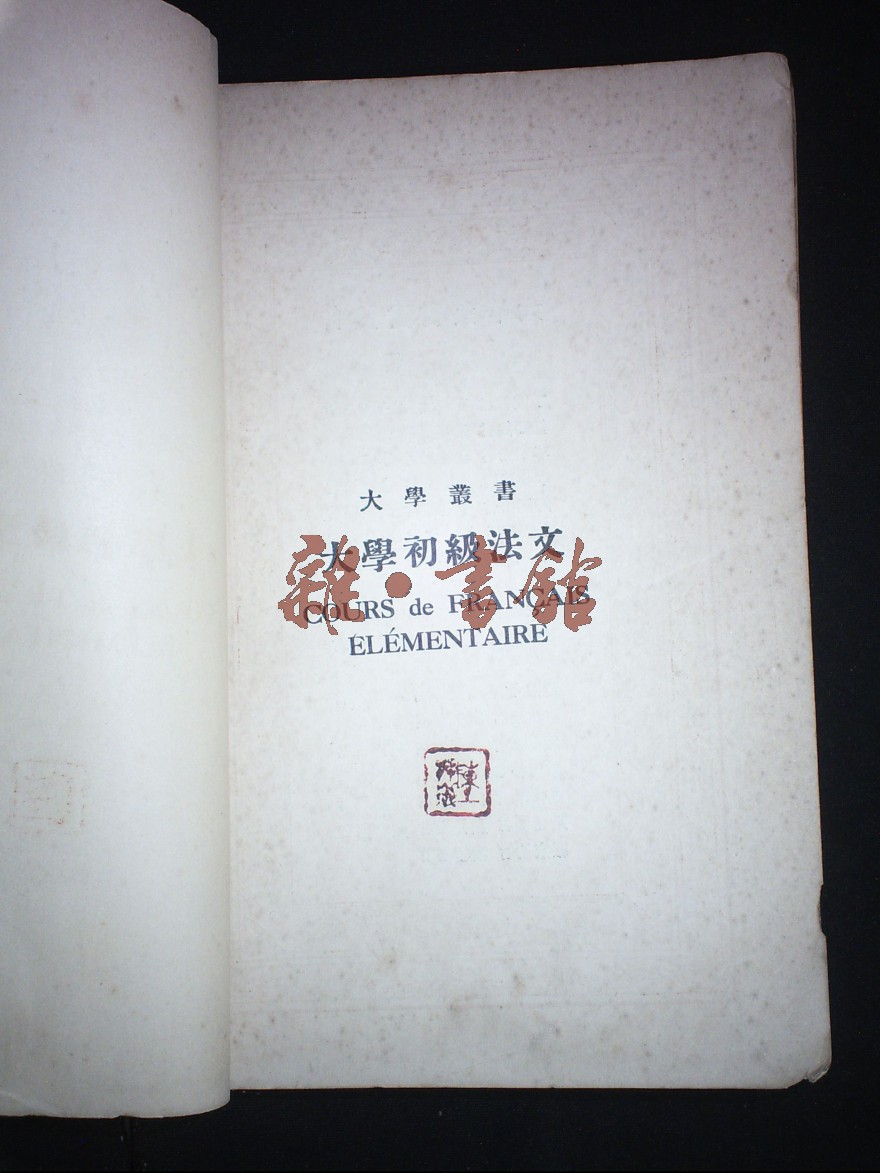 大學叢書
大學初級法文
雜·書館
COURS de FRANÇAIS
ÉLÉMENTAIRE